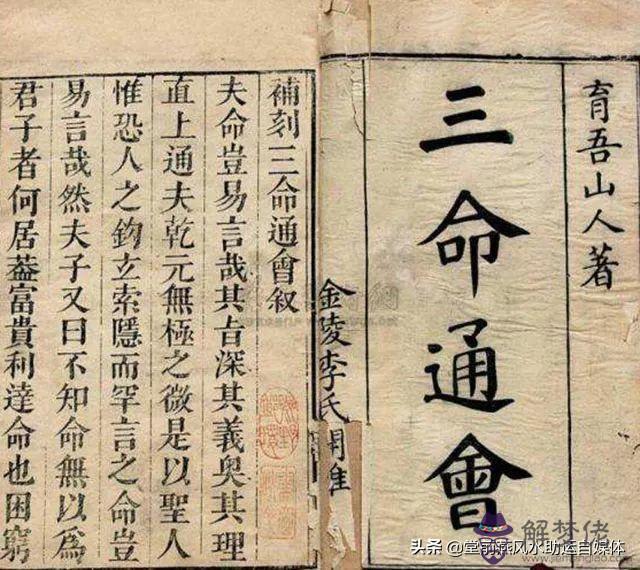 育吾山人著
三命通會
金陵李氏
補刻三命通會叙
夫命豈易言哉其旨深其義奥其理
直上通夫乾元無極之微是以聖人
惟恐人之鈎玄索隱而罕言之命豈
易言哉然夫子又曰不知命無以爲
君子者何居葢富貴利達命也困窮
解梦佬
头条 @堂前燕风水助运自媒体